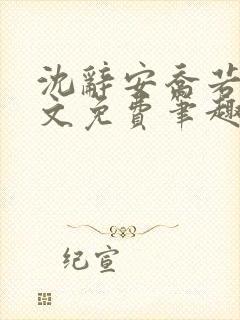 沈辞安乔若
文免费笔趣
纪宣